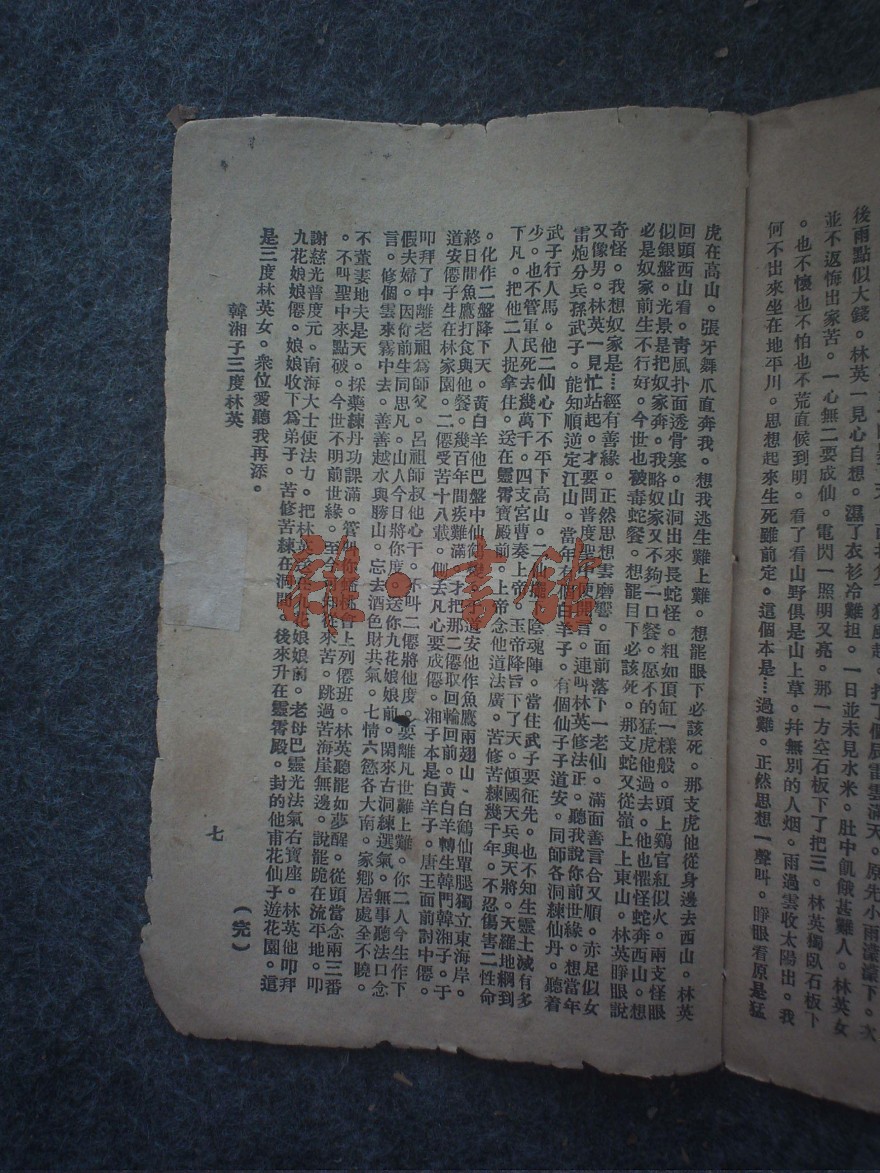 後雨點似大錢。林英一見心自想。濕了衣衫冷難担。一日並未見水米。肚中飢餓甚難人。林英女
並不返悔出家苦。一心無二要成仙。電閃一照明又亮。那一方空石板下了把三。林英獨臥石板下
。也不懷也不怕也不荒直候到明。看了看山野俱是山上草。幷無別的人烟。雨過雲收太陽出。我
何不出來坐在地平川。思想起來生死雖前定。這個本是…過難。正然思想一聲叫。睜眼看原是猛
虎在高山。張牙舞爪直奔我。想我逃生難上難。想罷眼下必該死。那支虎他從身邊去西山。林英
回頭西山看。靑風扑面透骨寒。山洞出來長蛇怪。粗如頂缸一樣般。頭上鷄官紅似火。兩支怪眼
似銀盤。光景是把奴家奔。我略奴家又不夠一口餐。愿不的猛虎他過去。他也懼怪蛇奔西山。想
必是奴家前生不行好。今世也被毒蛇餐。想罷目下必該死。那支蛇又從嶺上上東山。林英睜眼說
奇怪。我想奴家是…經有善緣。正然思想雲磨響。面前落下一老仙。滿面善言合又順。亦足似女
又像男。林英一見忙站起。才要問普度聖中使開言。連叫林英修法正。聽我說你前世緣。想當年
雷炮分兵孫武子。能知順逆定江山。當年有個白羊子。有個仙子于道安。同師各洞練仙丹。聽着
武子行人馬。他二仙心下不平下高山。二仙擺下陰魂陣。當住武子要征先。也不知生靈土滅有多
少。也不管軍民死去幾萬千。四支宮曹奏上帝。玉帝降旨下了天。傾國天兵與天將。天羅地網到
下凡。把他二人捉拿住。送在靈霄寶殿前。上帝念他道法廣。苦修苦練幾千年。不忍傷害二性命
。化作二盤降下天。黃白羊他巴盤中仙　　　道安他作魚鷹兩翅山。白鶴仙單腿獨立東海岸。
終日間魚鷹打食與他餐。幾百年間疾難滿。才把那二僊取回輪回前。黃白羊轉生韓門韓湘子。于
道安僊子生在林家園。二僊受苦十八載。倒去凡心要成僊。湘子本是白羊子。唐王面前討中僊。
叩拜了中離老祖爲師父。呂祖師叔他心干。不叫二僊將他度。要離凡世難上難。你二人今生作下
假夫婦。因你前生同思凡。山人今日將你度。送你九花娘娘前。閑來古洞練選氣。無事聽法口念
言。修個雲來霧中去。善善越水與勝山。忘去酒色財共氣。七情六慾各大南。家鄉居處全不曉。
不董妻地夫是天。採藥練丹功課滿。管　你蟠桃會上列僊班。林英聽罷如夢醒。從頭當念兩三番
。不叫聖中來點破。今世不明前世緣。至今可知從來苦。跳過苦海崖無邊。說罷跪在流平地。叩
謝慈光普度元。南海大士使法力。把林英送在　娘娘前。老母巴靈光法氣右寶座。林英他叩拜
九花娘娘僊。娘娘收下爲弟子。苦修苦練在洞間。後來升在靈霄殿。封的他甫花仙子遊花園。這
是三度林英女。衆位愛聽我再添。
韓湘子三度林英
七
（完）
雜·書館